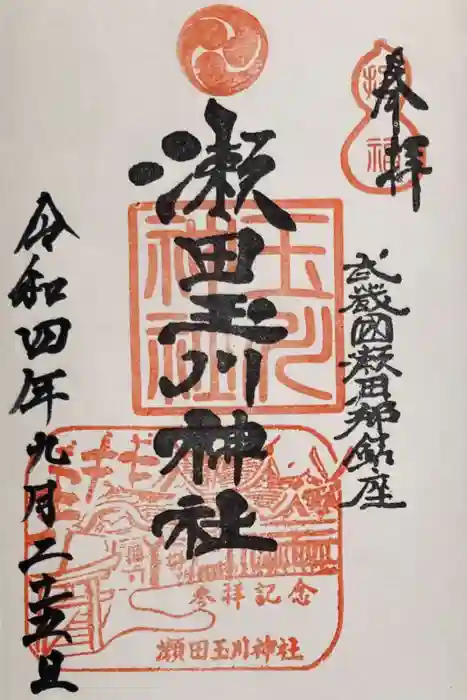 奉拝
武蔵国瀬田郷鎮座
瀬田玉川神社
令和四年九月二十五日
玉川神社
参拝記念
瀬田玉川神社